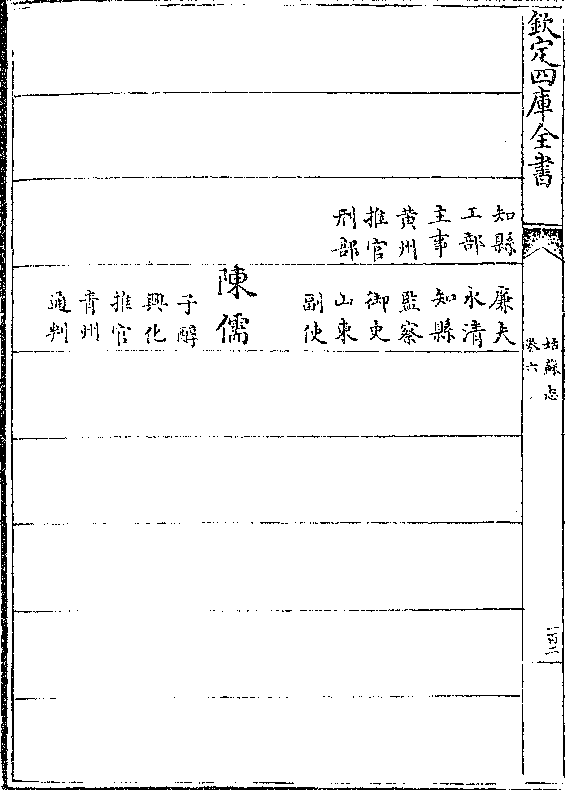 欽定四庫全書
姑蘇志
卷六
百二
知縣
工部
主事
黃州
推官
刑部
廉夫
永清
知縣
監察
御史
山東
副使
陳儒
子醇
興化
推官
青州
通判